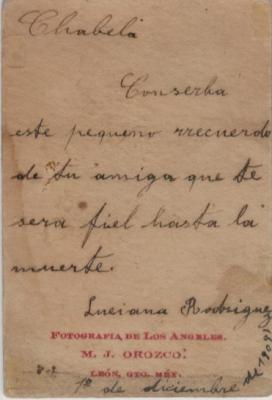 Chabela
Conserba
este pequeno rrecuerdo
de tu amiga que te
sera fiel hasta la
muerte.
Luciana Rodriguez
FOTOGRAFIA DE LOS ANGELES.
M. J. OROZCO.
LEÓN, GTO. MÉX.
1º de diciembre de 1909